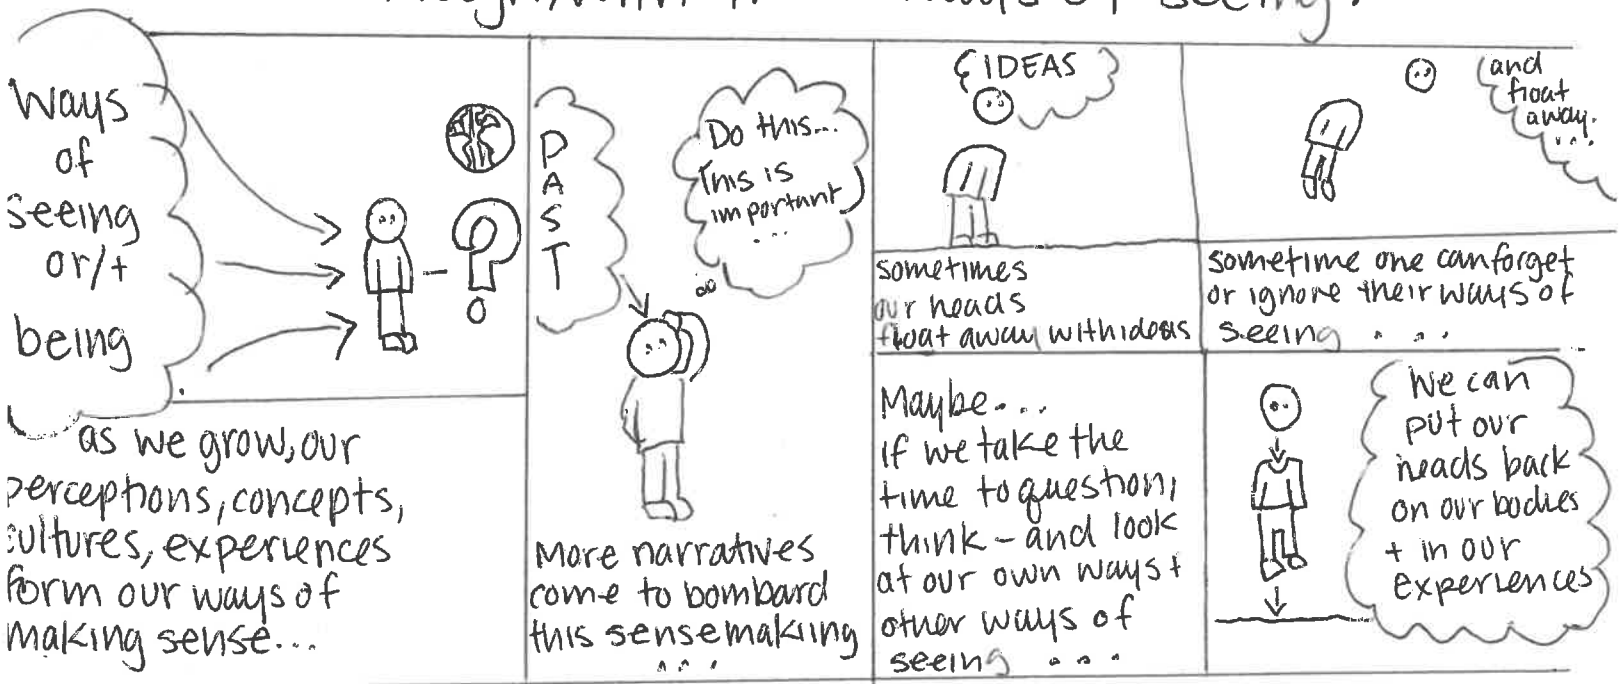 ways of seeing?
Ways
of
seeing
or/+
being
as we grow, our
perceptions, concepts,
cultures, experiences
form our ways of
making sense...
PAST
Do this...
This is
important
...
More narratives
come to bombard
this sensemaking
...
IDEAS
sometimes
our heads
float away with ideas
and
float
away.
...
sometime one can forget
or ignore their ways of
seeing ...
Maybe...
if we take the
time to question,
think - and look
at our own ways +
other ways of
seeing ...
We can
put our
heads back
on our bodies
+ in our
experiences